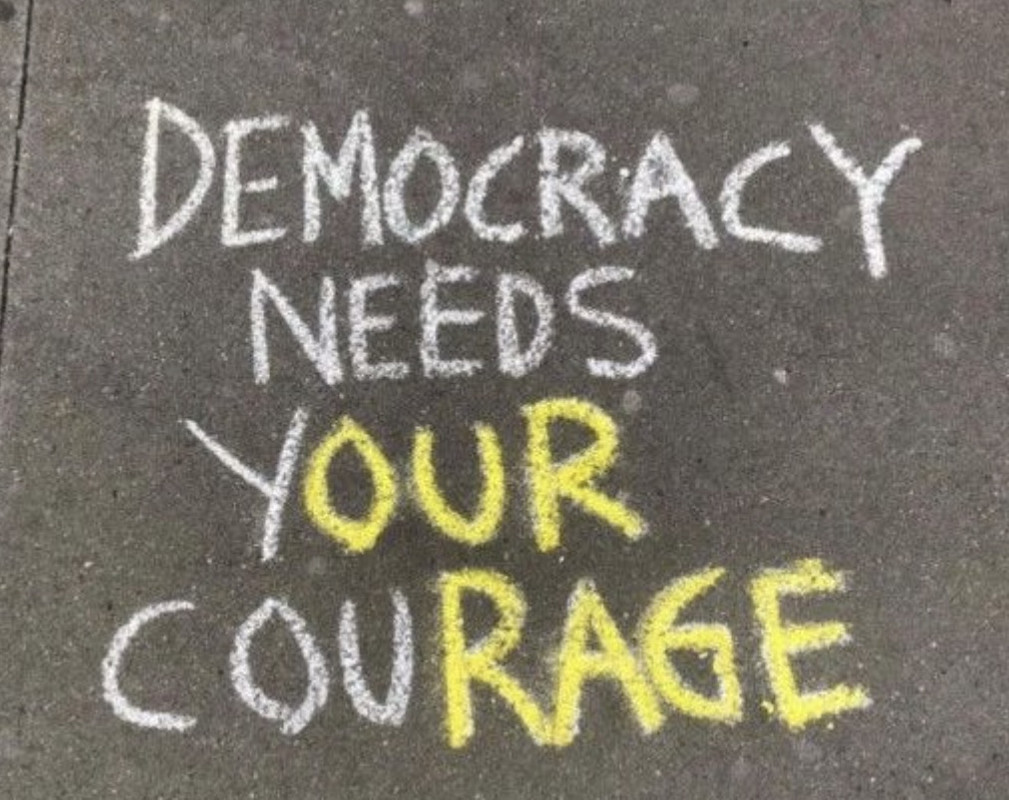 DEMOCRACY
NEEDS
YOUR
COURAGE